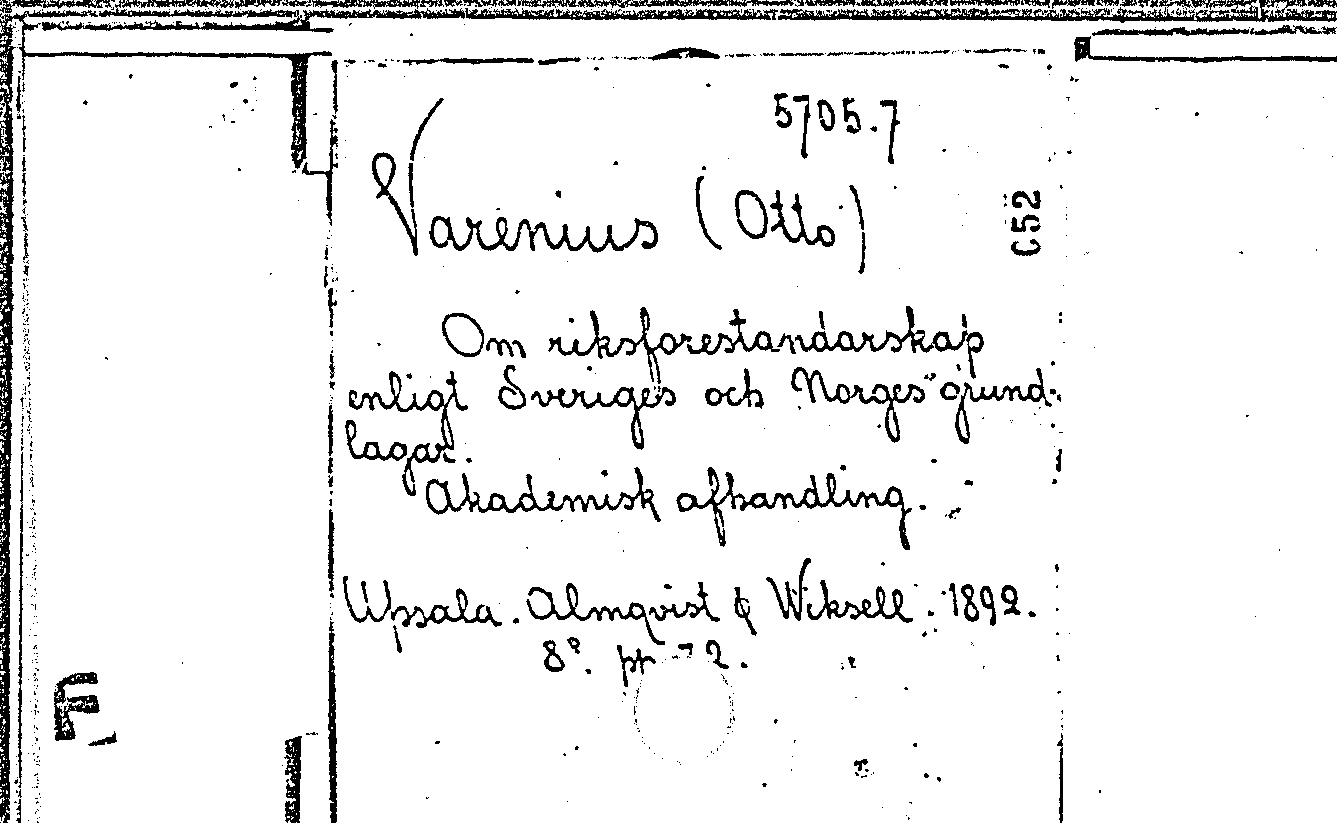 5705.7
Varenius (Otto)
C52
Om riksforestandarskap
enligt Sveriges och Norges grund-
lagar.
Akademisk afhandling.
Upsala. Almqvist & Wiksell. 1892.
8°. pp 72.
F